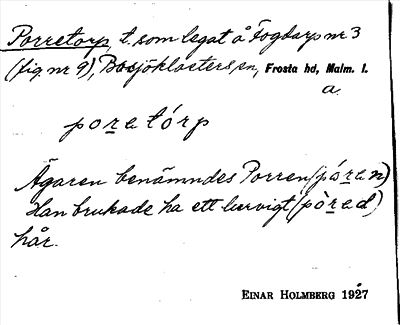 Porretorp, t. som legat å Fogdarp nr 3
(fig. nr 9), Bosjöklosters sn, Frosta hd, Malm. l.
a.
poretórp
Ägaren benämndes Porren (póren)
Han brukade ha ett lurvigt (pòred)
hår.
EINAR HOLMBERG 1927